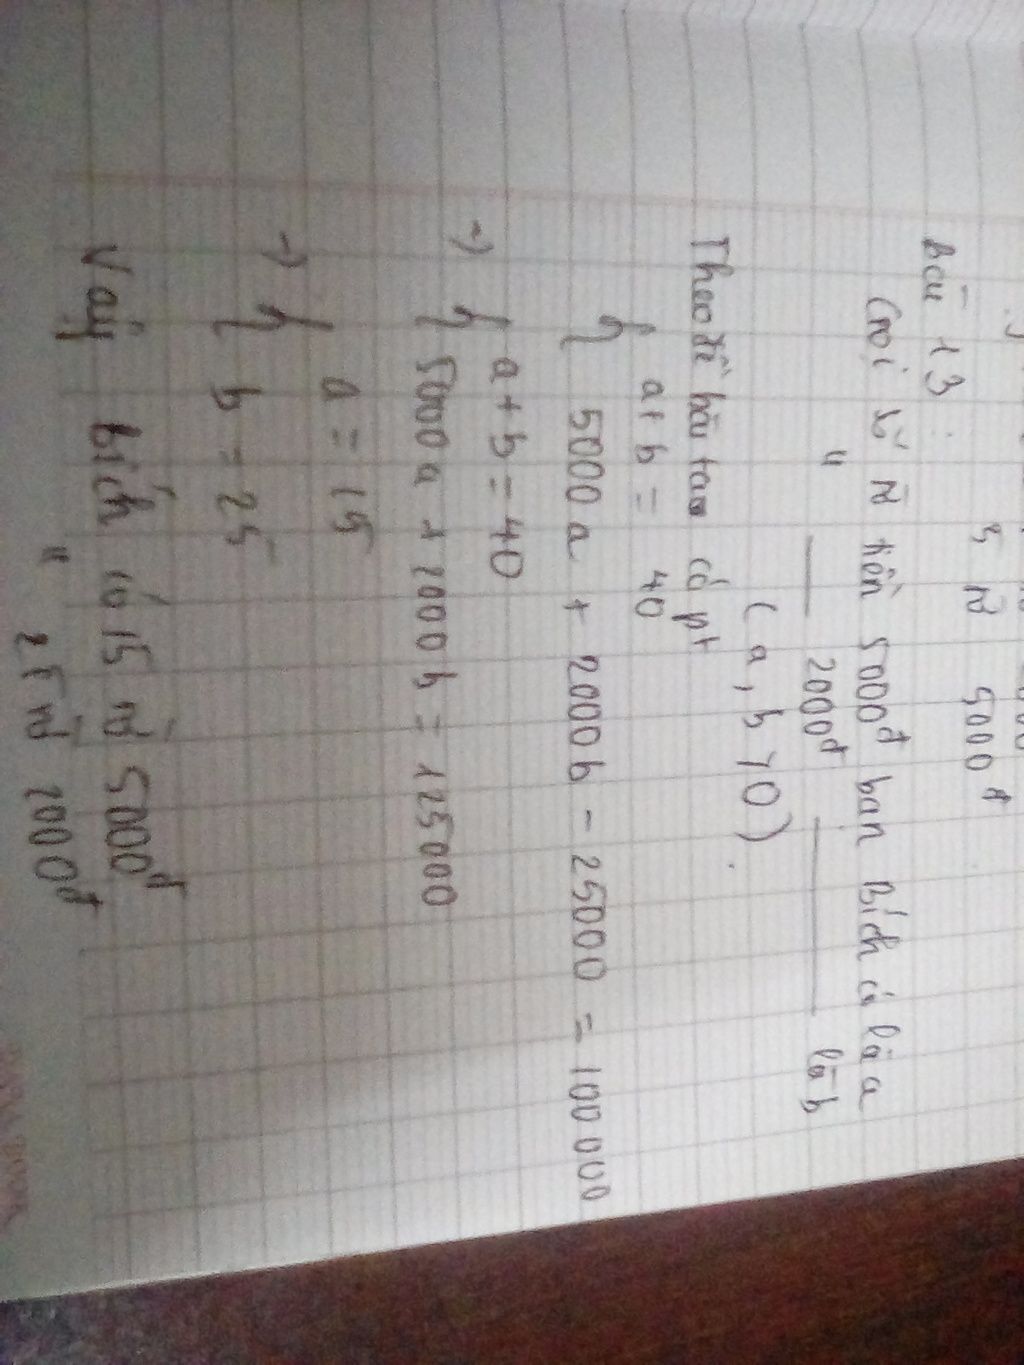 5 tờ 5000đ
Bài 13:
Gọi số tờ tiền 5000đ bạn Bích có là a
" — 2000đ — là b
(a, b > 0).
Theo đề bài ta có pt
{ a + b = 40
{ 5000a + 2000b - 25000 = 100 000
→ { a + b = 40
{ 5000a + 2000b = 125000
→ { a = 15
{ b = 25
Vậy bích có 15 tờ 5000đ
" 25 tờ 2000đ